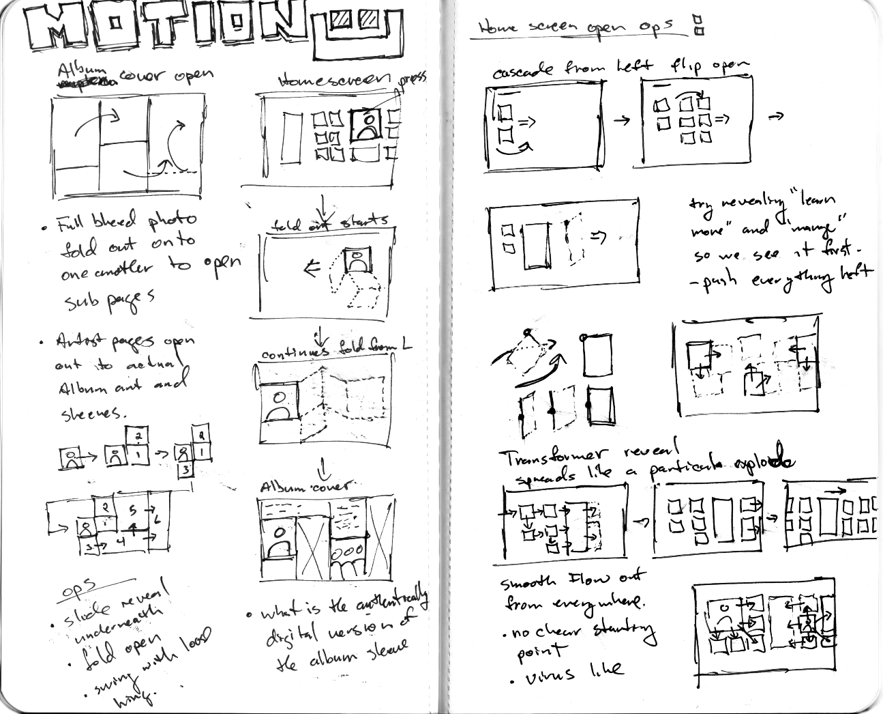 MOTION
Album cover open
• Full bleed photo
fold out onto
one another to open
sub pages
• Artist pages open
out to actual
Album art and
sleeves.
2
1
2
1
3
2
1
5
6
3
4
ops
• slide reveal
underneath
• fold open
• swing with loop
hing.
Homescreen
press
fold out starts
continues fold from L
Album cover
• what is the authentically
digital version of
the album sleeve
Home screen open ops
cascade from left flip open
try revealing "learn
more" and "manage"
so we see it first.
- push everything left
Transformer reveal
spreads like a particule explode
smooth flow out
from everywhere.
• no clear starting
point
• virus like